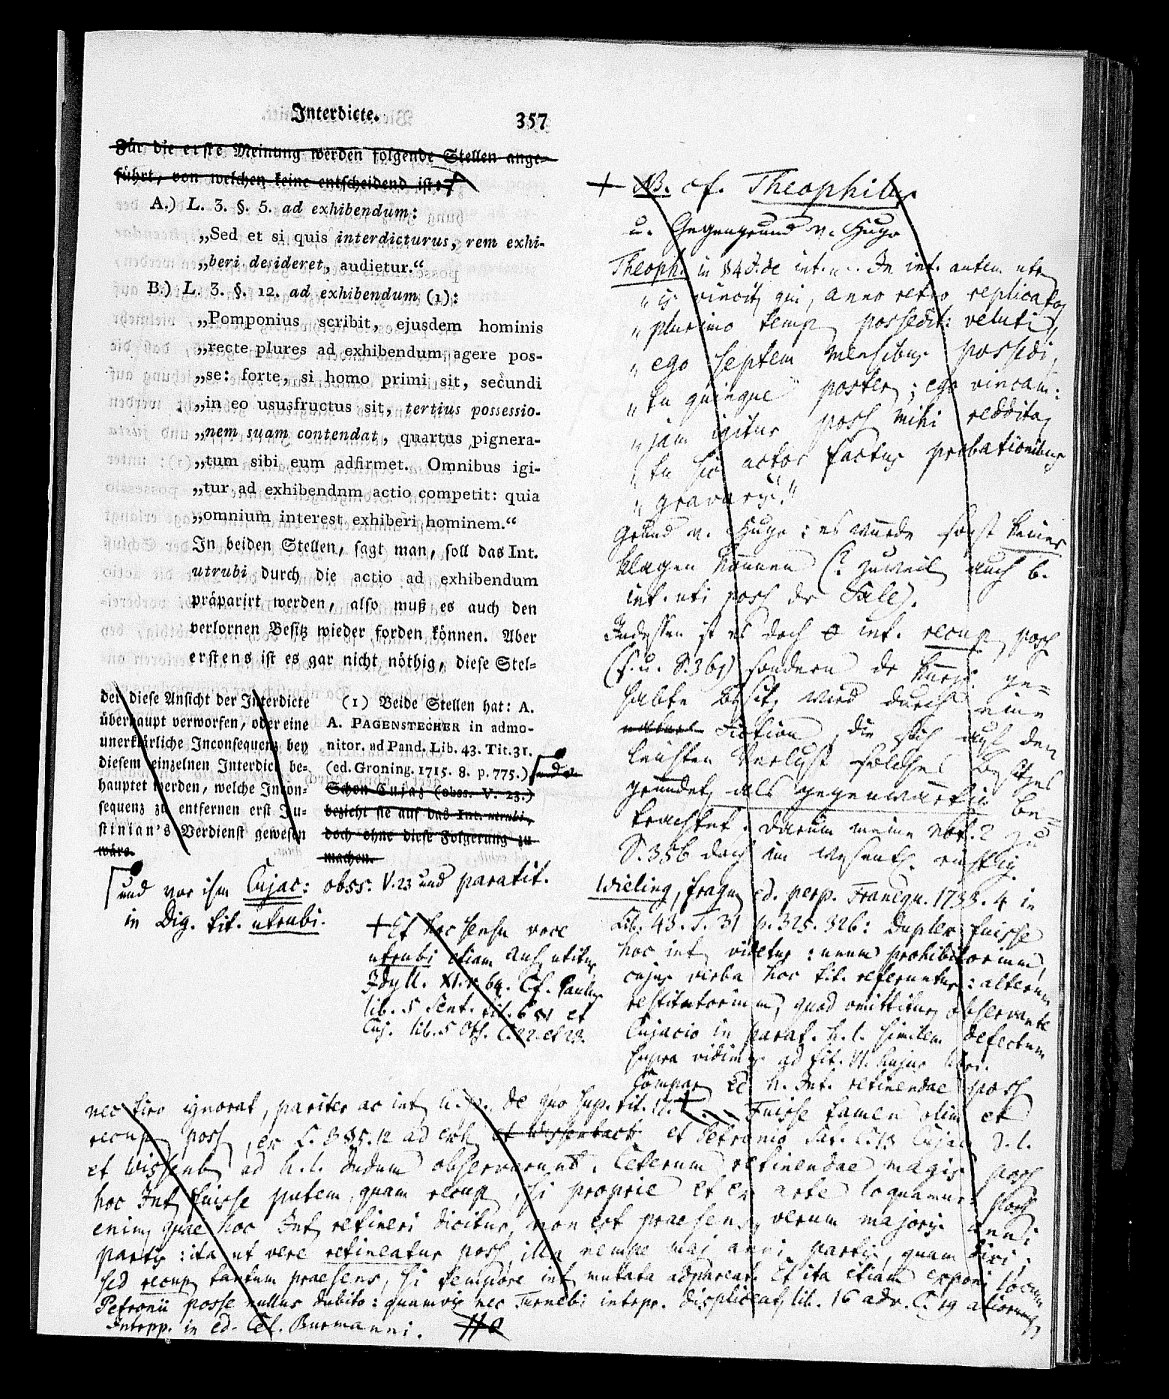 Interdicte.
357
Für die erste Meinung werden folgende Stellen ange-
führt, von welchen keine entscheidend ist:
A.) L. 3. §. 5. ad exhibendum:
„Sed et si quis interdicturus, rem exhi-
„beri desideret, audietur.“
B.) L. 3. §. 12. ad exhibendum (1):
„Pomponius scribit, ejusdem hominis
„recte plures ad exhibendum agere pos-
„se: forte, si homo primi sit, secundi
„in eo ususfructus sit, tertius possessio-
„nem suam contendat, quartus pignera-
„tum sibi eum adfirmet. Omnibus igi-
„tur ad exhibendnm actio competit: quia
„omnium interest exhiberi hominem.“
In beiden Stellen, sagt man, soll das Int.
utrubi durch die actio ad exhibendum
präparirt werden, also muß es auch den
verlornen Besitz wieder forden können. Aber
erstens ist es gar nicht nöthig, diese Stel-
der diese Ansicht der Interdicte
überhaupt verworfen, oder eine
unerklärliche Inconsequenz bey
diesem einzelnen Interdict be-
hauptet werden, welche Incon-
sequenz zu entfernen erst Ju-
stinian's Verdienst gewesen
wäre.
(1) Beide Stellen hat: A.
A. PAGENSTECHER in admo-
nitor. ad Pand. Lib. 43. Tit. 31.
(ed. Groning. 1715. 8. p. 775.)
Schon Cujaz (obss. V. 23.)
bezieht sie auf das Int. utrubi,
doch ohne diese Folgerung zu
machen.
und vor ihm Cujac: obss. V. 23 und paratit.
in Dig. tit. utrubi.
+ Et hoc sensu voce
utrubi etiam
Idyll. Cf. Paulus
lib. 5 Sent. tit. 6 §1 et
Cuj. lib. 5 Obs. C. 22. et 23.
+ NB. cf. Theophilus
u. Gegengrund v. Hugo
Theoph. in §4 J. de int. In int. autem utr
„is vincit, qui, anno retro replicato,
„plurimo temp possedit: veluti,
„ego septem mensibus possedi,
„tu quinque poster; ego vincam:
„jam igitur poss mihi reddita,
„tu sic actor factus probationibus
„gravaris.“
Grund v. Hugo: es würde sonst keiner
klagen können (? zuweil auch b.
int. uti poss de Sale).
Indessen ist es doch int. recup poss
(s. u. S. 369) sondern de ge=
habte Besitz wird durch eine
Fiction, die sich auf den
Verlust solches Besitzes
gründet, als gegenwärtig be=
trachtet. Darum meine Abh.? zu
S. 356 doch im wesentl. richtig.
Wieling, fragm Ed. perp. Franequ. 1733. 4 in
Lib. 43. T. 31 p. 325. 326: Duplex fuisse
hoc int videtur: unum prohibitorium,
cujus verba hoc tit. referuntur: alterum
restitutorium, quod omittitur, observante
Cujacio in parat. h. l. similem defectum
supra vidimus ad tit.
Compar Ed h. Int. retinendae poss
nec tiro ignorat, pariter ac int u. p. de quo sup. tit. 17. Fuisse tamen olim et
recup poss, ex L. 3 §5. 12 ad exh et Wissenbach et Petronio Sat. C. 13 Cujac d. l.
et Wissenb ad h. l. dudum observarunt. Ceterum retinendae magis poss
hoc Int fuisse putem quam recup, si proprie et ex arte loquamur. poss
enim, quae hoc Int retineri dicitur, non est praesens, verum majoris anni
partis: ita ut vere retineatur poss illa nempe maj anni partis, quam dixi;
sed recup tantum praesens, si tempore int mutata adpareat. Et ita etiam exponi locum
Petronii posse nullus dubito: quamvis nec Turnebi interpr. displiceat, lib. 16 adv. C. 19 aliorumq
Intepp. in ed. Cel. Burmanni.